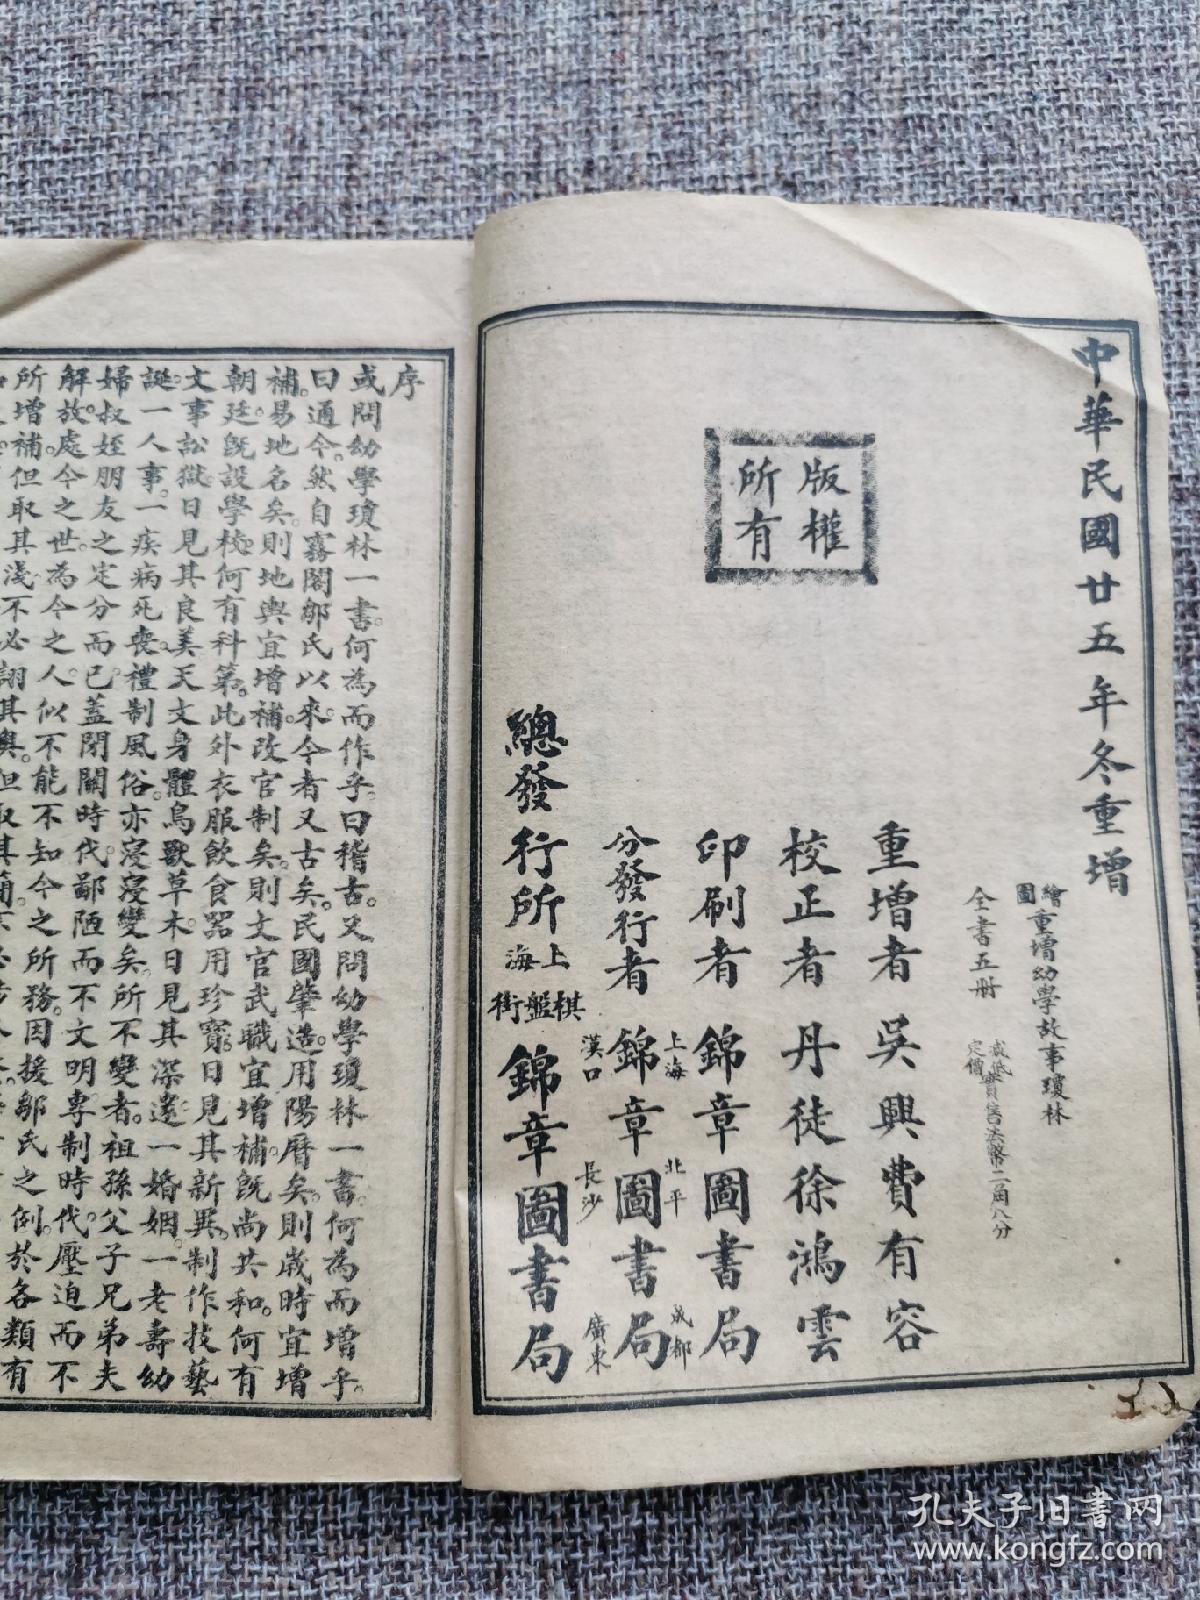 中華民國廿五年冬重增
繪圖重增幼學故事瓊林
全書五册
定價
減低實售法幣二角八分
版權
所有
重增者吳興費有容
校正者丹徒徐鴻雲
印刷者錦章圖書局
上海 北平 成都
分發行者錦章圖書局
漢口 長沙 廣東
總發行所上海棋盤街錦章圖書局
序
或問幼學瓊林一書何為而作乎。曰稽古。又問幼學瓊林一書。何為而增乎。
曰通今。然自霧閣鄒氏以來。今者又古矣。民國肇造。用陽曆矣。則歲時宜增
補。易地名矣。則地輿宜增補。改官制矣。則文官武職宜增補。既尚共和。何有
朝廷。既設學校。何有科第。此外衣服飲食器用珍寶。日見其新異。制作技藝
文事訟獄。日見其良美。天文身體鳥獸草木。日見其深邃。一婚姻。一老壽幼
誕。一人事。一疾病死喪。禮制風俗。亦寖寖變矣。所不變者。祖孫父子兄弟夫
婦叔姪朋友之定分而已。蓋閉關時代。鄙陋而不文明。專制時代。壓迫而不
解放。處今之世。為今之人。似不能不知今之所務。因援鄒氏之例。於各類有
所增補。但取其淺。不必詡其奧。但取其簡。
孔夫子旧書网
www.kongfz.com